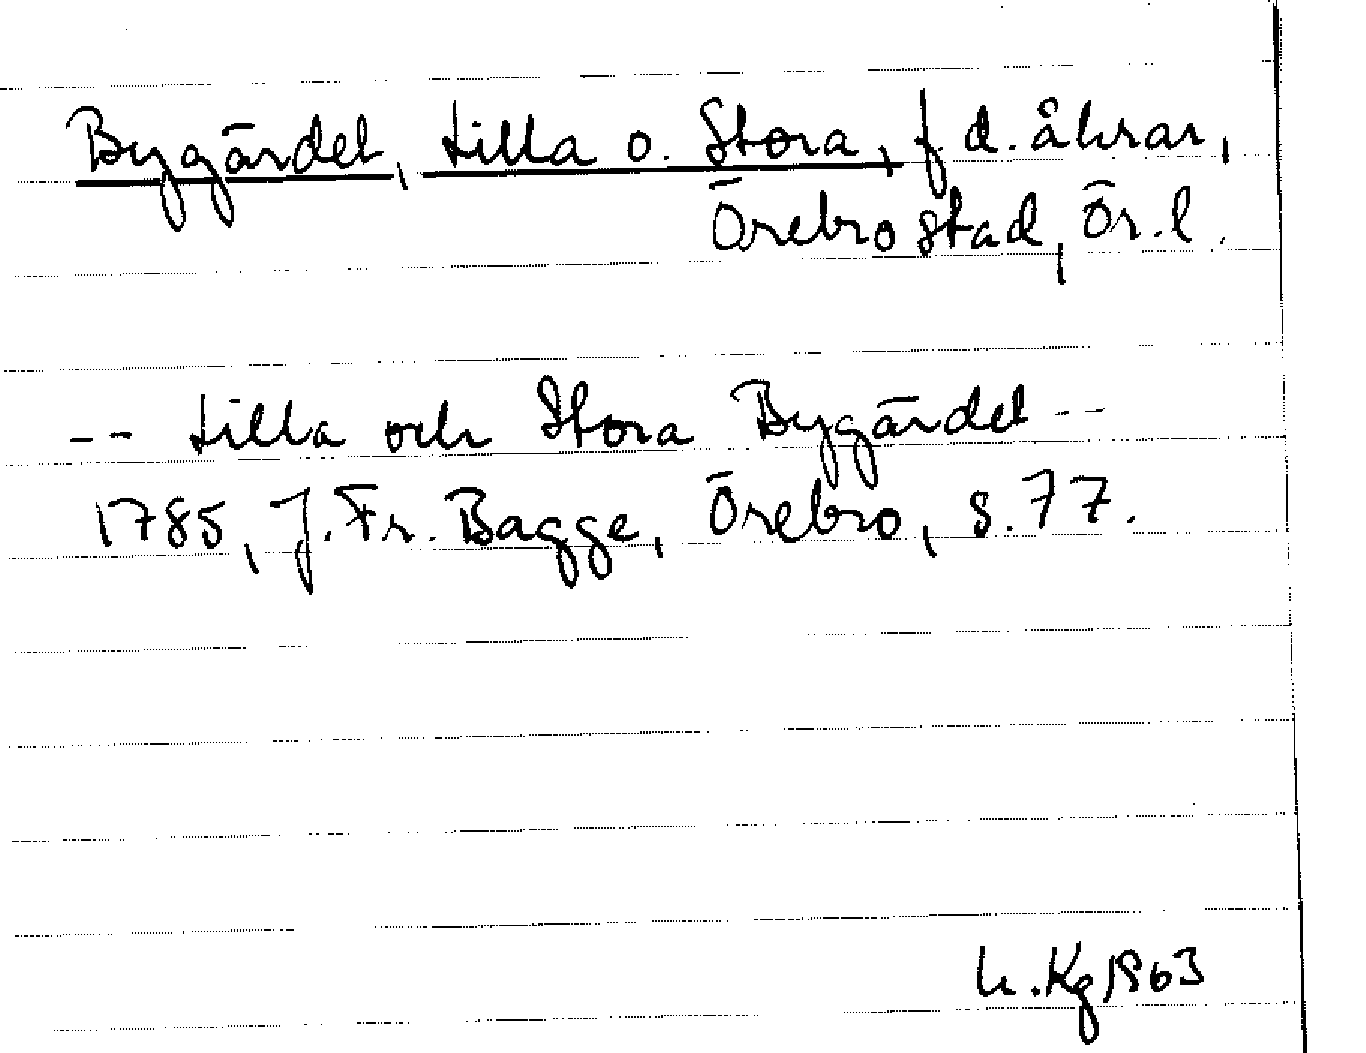 Bygärdet, Lilla o. Stora, f d. åkrar,
Örebro stad, Ör. l.
-- Lilla och Stora Bygärdet --
1785, J. Fr. Bagge, Örebro, s. 77.
Kg 1963